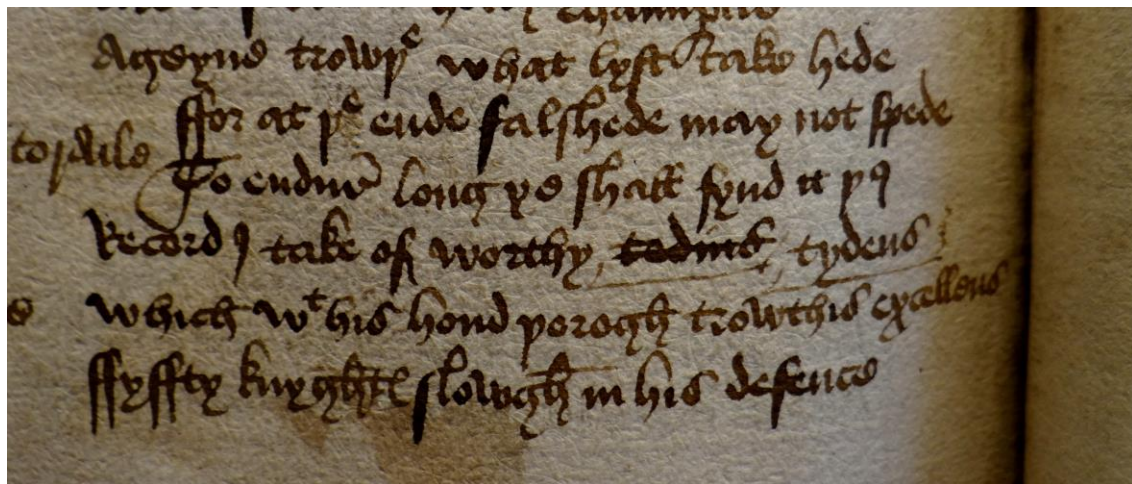 Champioun
ageyns trowþe what lyst take hede
ffor at þe ende falshede may not spede
To endur̄ long ye shall fynd it þus
Record I take of worthy tedius tydeus
which wt his hond þorogh trowthis excellens
ffyffty knyghtes slowgh in his defence